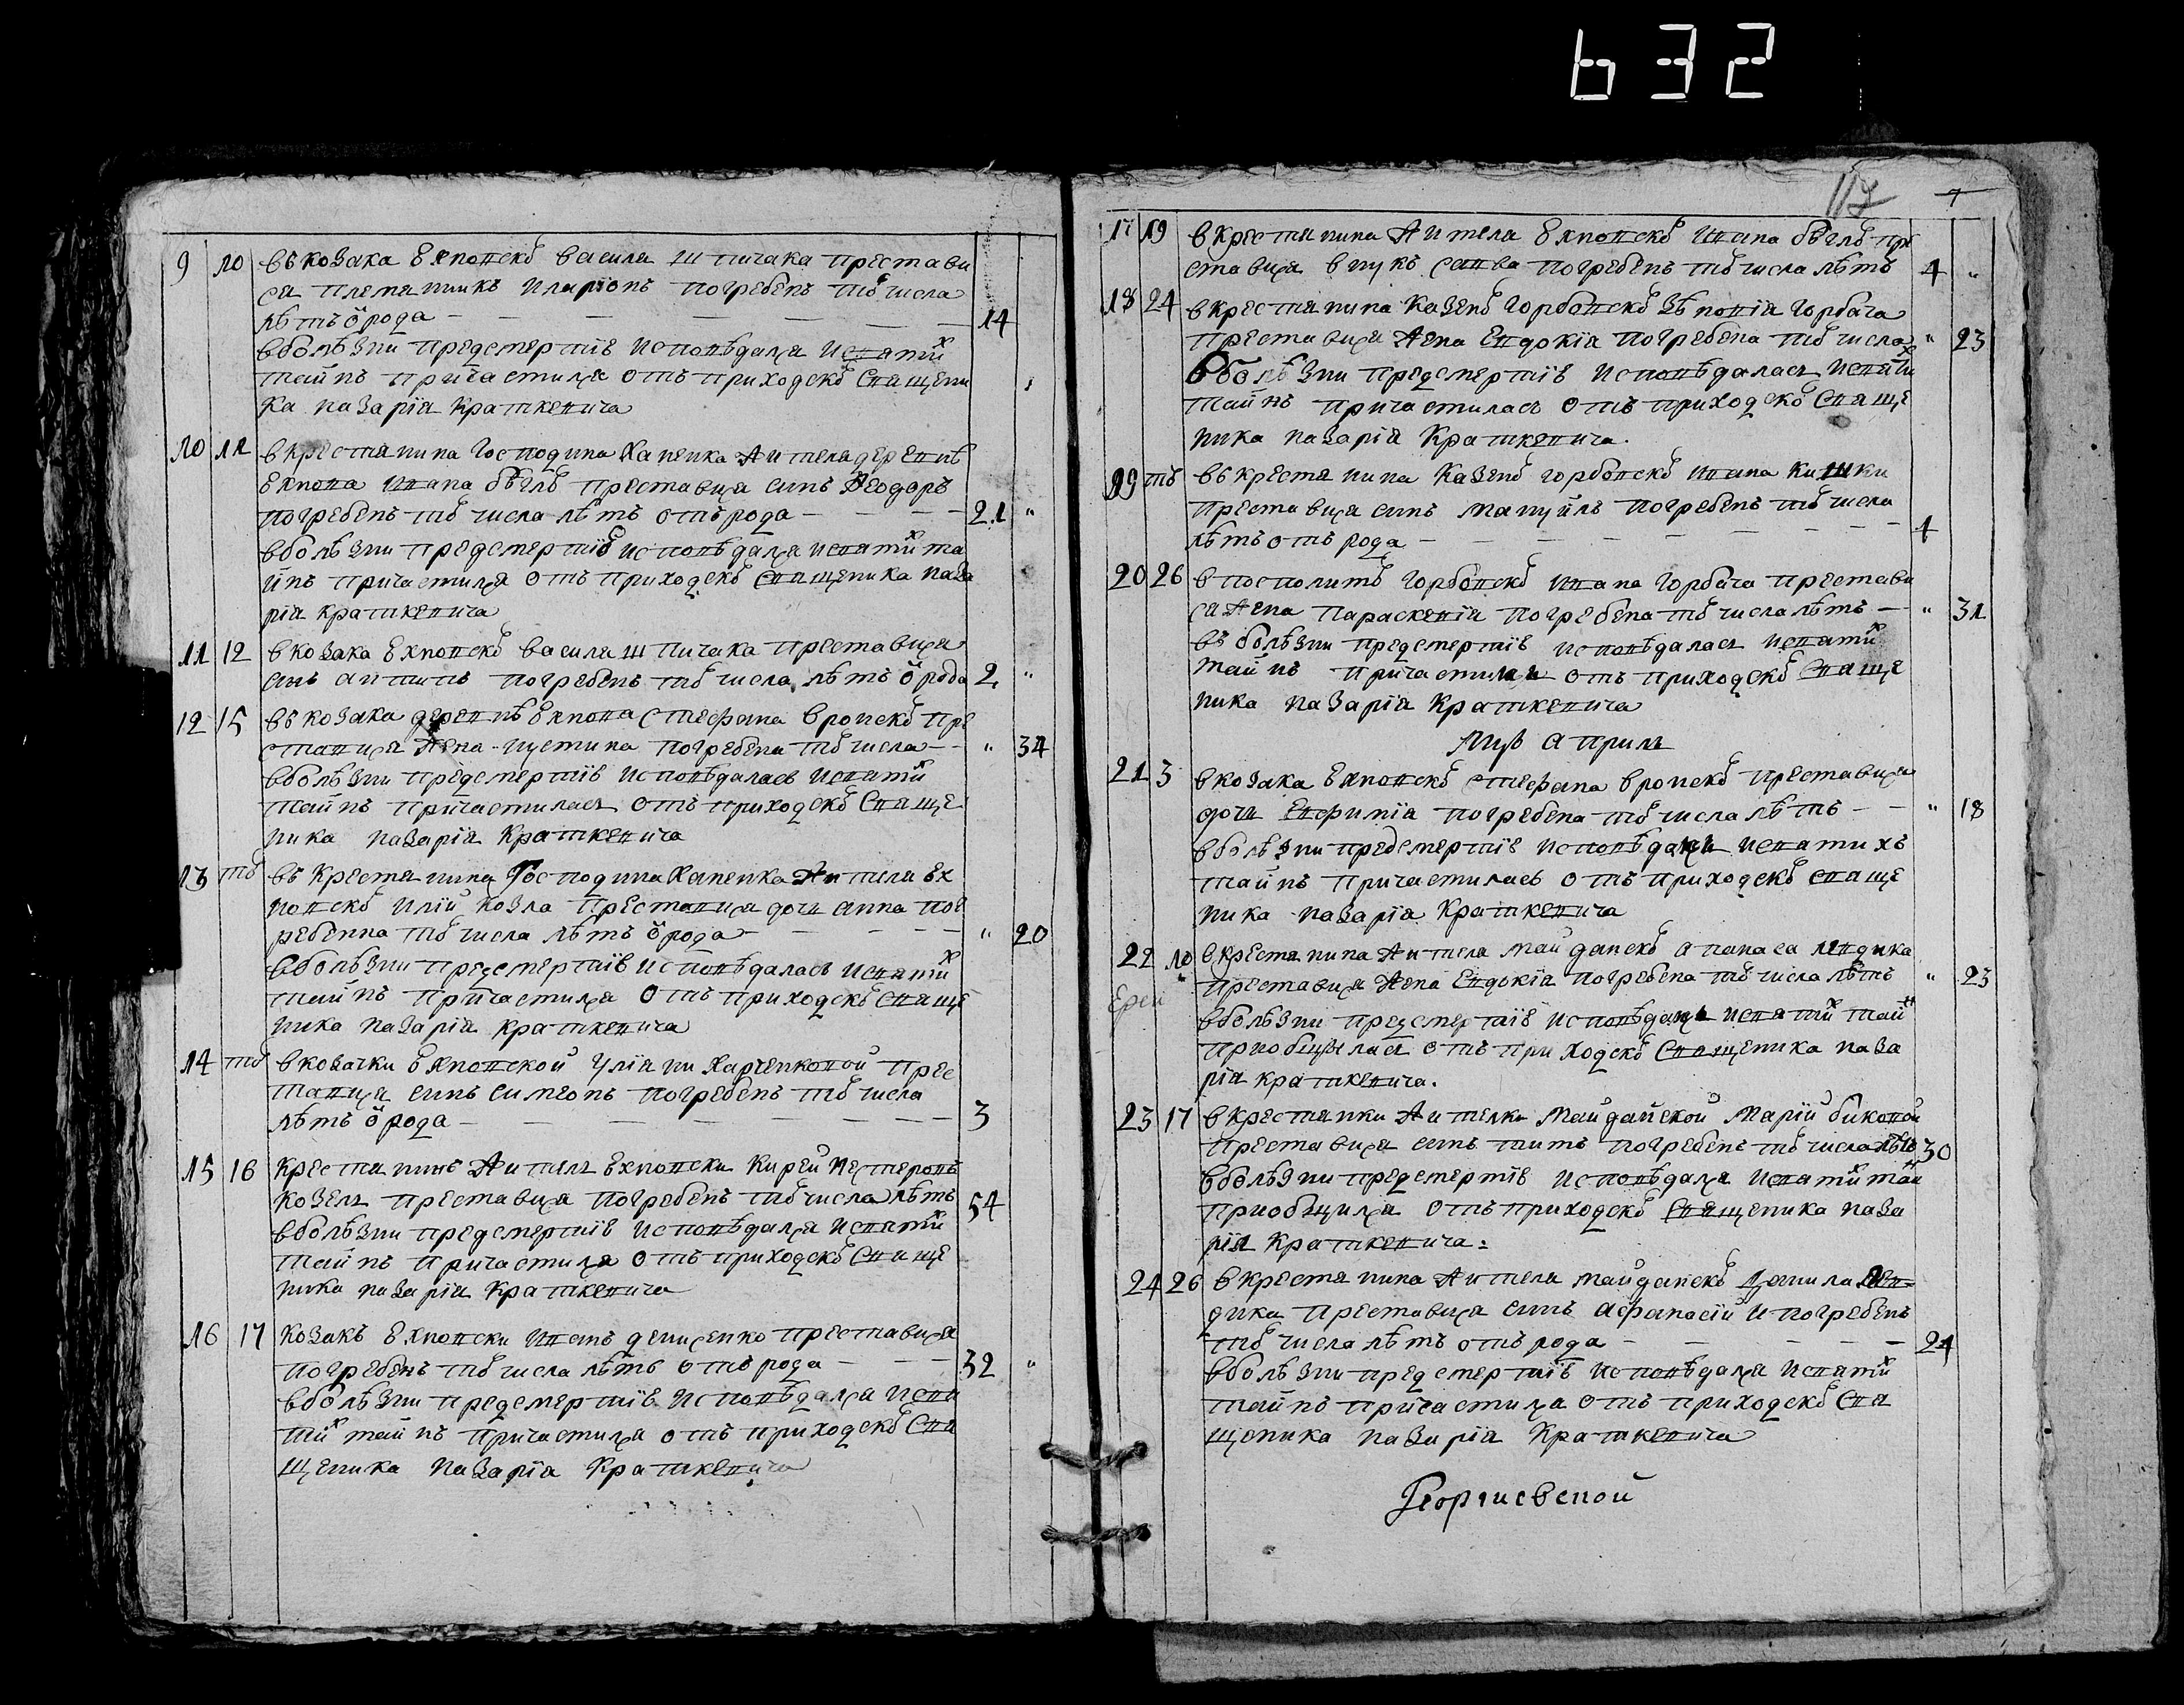 632
117
9 10 въ козака Яхновског Василя Шпичака престави
ся племянникъ Иларіонъ погребенъ тог числа
лѣтъ ѿ рода 14
в болѣзни предсмертнѣ исповѣдался и святих
тайнъ причастился отъ приходског священи
ка Назарія Краткевича
10 11 в крестянина господина Ханенка жителя деревнѣ
Ивана преставися синъ Феодоръ
погребенъ тог числа лѣтъ отъ рода 21 "
в болѣзни предсмертнѣ исповѣдался и святих та
йнъ причастился отъ приходског священика Наза
рія Краткевича
11 12 в козака Василя Шпичака преставися
синъ Антипъ погребенъ тог числа лѣтъ ѿ рода 2 "
12 15 въ козака деревнѣ Стефана Вронског пре
ставися жена Иустина погребена тог числа " 34
в болѣзни предсмертнѣ исповѣдалась и святих
тайнъ причастилась отъ приходског свяще
ника Назарія Краткевича
13 тог въ крестянина господина Ханенка жителя
Илій Козла преставися дочь Анна пог
ребенна тог числа лѣтъ ѿ рода " 20
в болѣзни предсмертнѣ исповѣдалась и святих
тайнъ причастился отъ приходског свяще
ника Назарія Краткевича
14 тог в козачки Уліяни Харченковой прес
тавися синъ Симеонъ погребенъ тог числа
лѣтъ ѿ рода 3
15 16 Крестянинъ житель Кирей Нестеровъ
Козелъ преставися погребенъ тог числа лѣтъ 54
в болѣзни предсмертнѣ исповѣдался и святих
тайнъ причастился отъ приходског свяще
ника Назарія Краткевича
16 17 Козакъ Иванъ Демченко преставися
погребенъ тог числа лѣтъ отъ рода 32 "
в болѣзни предсмертнѣ исповѣдался и свя
тих тайнъ причастился отъ приходског свя
щеника Назарія Краткевича
17 19 в крестянина жителя Ивана пре
ставися внукъ Савва погребенъ тог числа лѣтъ 4 "
18 24 в крестянина казенног Горбовског Зѣновія Горбача
преставися жена Евдокія погребена тог числа " 23
в болѣзни предсмертнѣ исповѣдалась и святих
тайнъ причастилась отъ приходског свяще
ника Назарія Краткевича.
19 тъ въ крестянина казенног Горбовског Ивана Кишки
преставися синъ Мануйлъ погребенъ тог числа
лѣтъ отъ рода 1
20 26 в посполитог Горбовског Ивана Горбача престави
ся жена Параскевія погребена тог числа лѣтъ " 31
въ болѣзни предсмертнѣ исповѣдалась и святих
тайнъ причастилася отъ приходског свяще
ника Назарія Краткевича
Мцъ Априль
21 3 в козака Стефана Вронског преставися
дочь Евфимія погребена тог числа лѣтъ " 18
в болѣзни предсмертнѣ исповѣдалась и святихъ
тайнъ причастилась отъ приходског свяще
ника Назарія Краткевича
22 10 в крестянина жителя Майданског Апанаса Лєвдика
преставися жена Евдокія погребена тог числа лѣтъ " 23
Ерей
в болѣзни предсмертнѣ исповѣдалась и святих тайн
приобщилася отъ приходског священика Наза
рія Краткевича.
23 17 в крестянки жителки Майданской Марій Биковой
преставися синъ Титъ погребенъ тог числа лѣтъ 30
в болѣзни предсмертнѣ исповѣдался и святих тайн
приобщился отъ приходског священика Наза
рія Краткевича:
24 26 в крестянина жителя Майданског Данила Лев-
дика преставися синъ Афанасій и погребенъ
тог числа лѣтъ отъ рода 24
в болѣзни предсмертнѣ исповѣдался и святих
тайнъ причастился отъ приходског свя
щеника Назарія Краткевича
Георгиевской